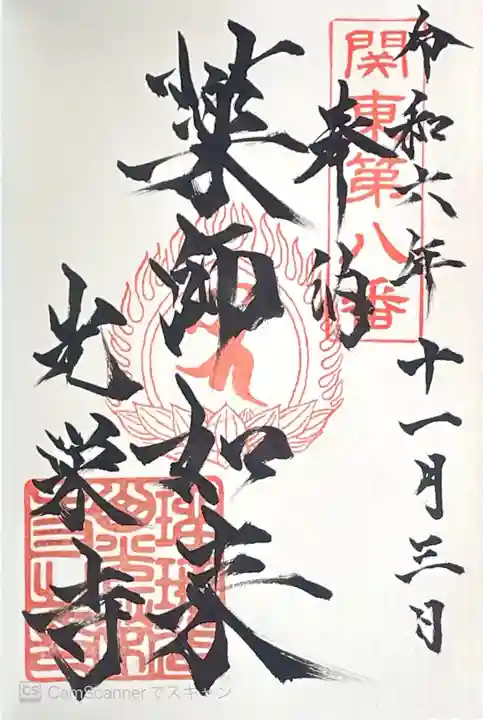 令和六年十一月三日
関東第八番
奉拝
薬師如来
光栄寺
CS CamScannerでスキャン